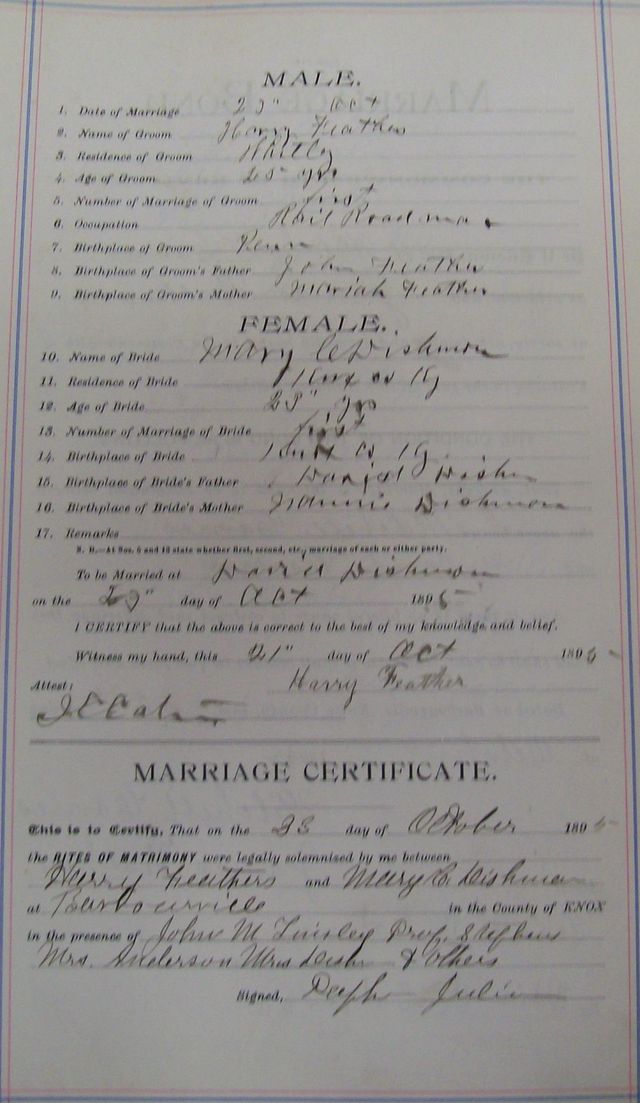 MALE.
1. Date of Marriage 23" Oct
2. Name of Groom Harry Feather
3. Residence of Groom Whitley
4. Age of Groom 25 yrs
5. Number of Marriage of Groom first
6. Occupation Rail Road man
7. Birthplace of Groom Penn
8. Birthplace of Groom's Father John Feather
9. Birthplace of Groom's Mother Mariah Feather
FEMALE.
10. Name of Bride Mary C Dishman
11. Residence of Bride Knox co Ky
12. Age of Bride 23" yrs
13. Number of Marriage of Bride first
14. Birthplace of Bride Knox co Ky
15. Birthplace of Bride's Father Daniel Dishm
16. Birthplace of Bride's Mother Nannie Dishman
17. Remarks
N. B.—At Nos. 5 and 13 state whether first, second, etc., marriage of each or either party.
To be Married at Dishman
on the 23" day of Oct 1895
I CERTIFY that the above is correct to the best of my knowledge and belief.
Witness my hand, this 21" day of Oct 1895
Harry Feather
Attest:
MARRIAGE CERTIFICATE.
This is to Certify, That on the 23 day of October 1895
the RITES OF MATRIMONY were legally solemnized by me between
Harry Feathers and Mary C. Dishman
at Barbourville in the County of KNOX
in the presence of John M Tinsley Prof. Stephens
Mrs. Anderson Mrs Dish & Others
Signed,